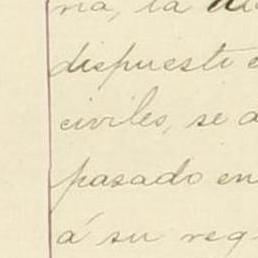 na, la
dispuesto
civiles, se a
pasado en
á su reg